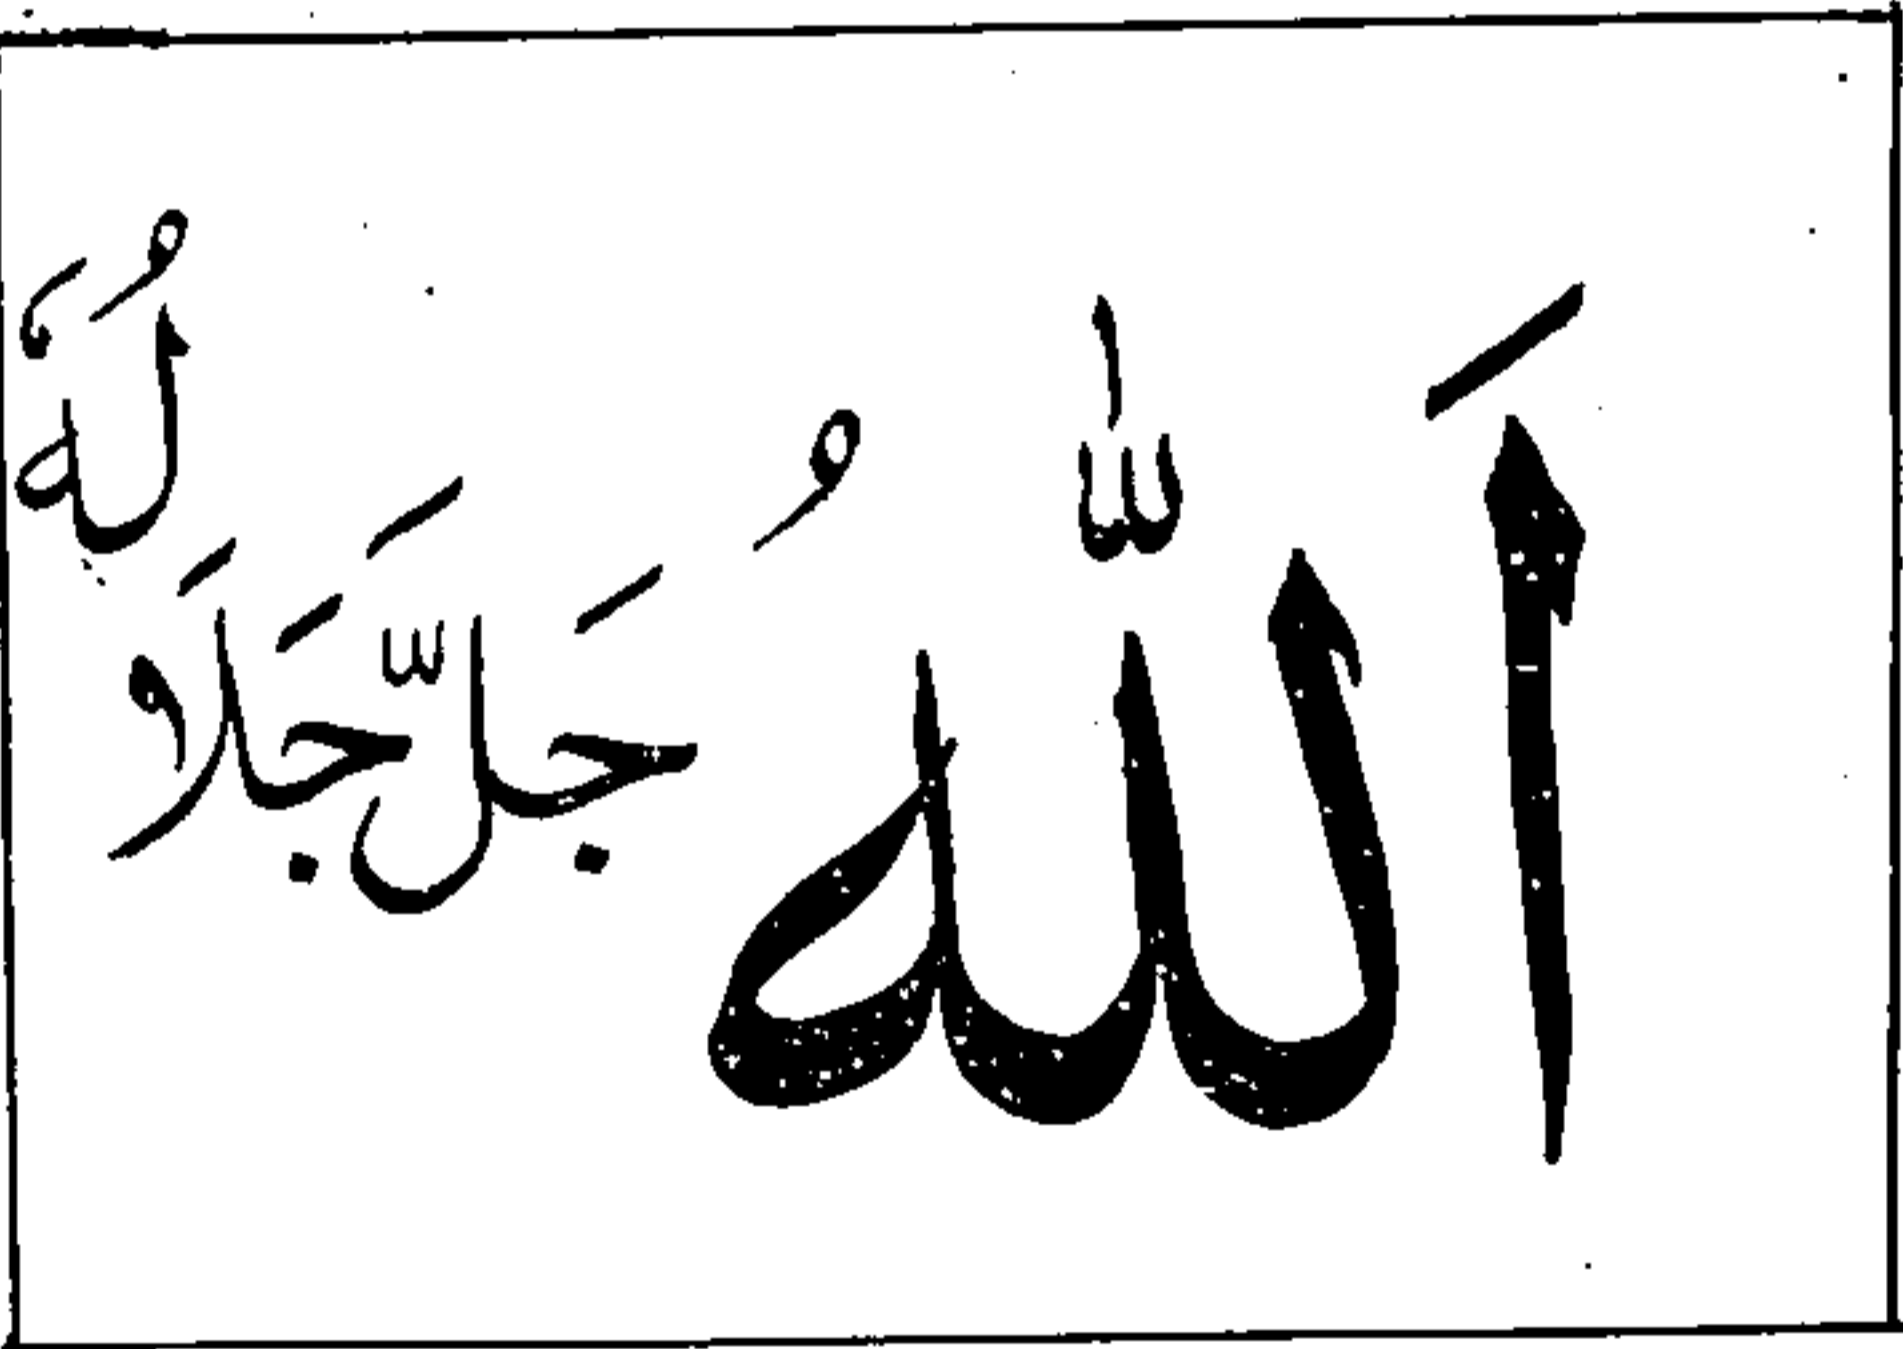 اَللّٰهُ جَلَّ جَلَالُهُ